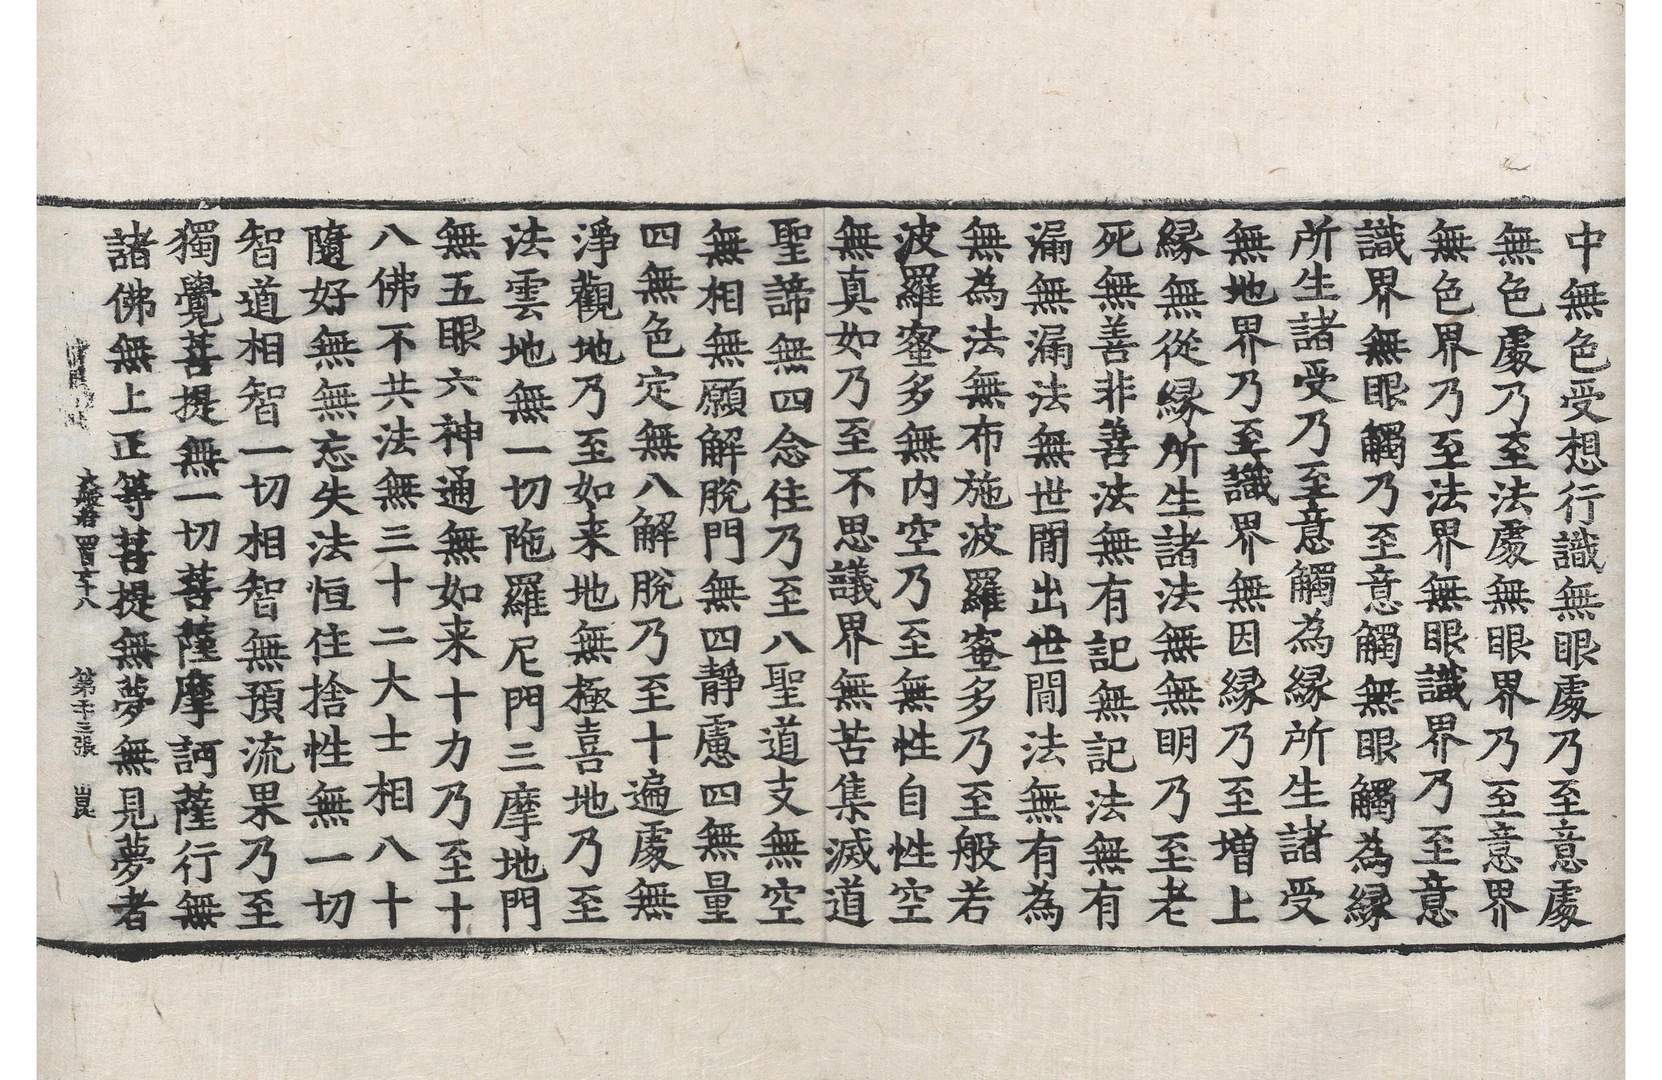 中無色受想行識無眼處乃至意處
無色處乃至法處無眼界乃至意界
無色界乃至法界無眼識界乃至意
識界無眼觸乃至意觸無眼觸為縁
所生諸受乃至意觸為縁所生諸受
無地界乃至識界無因縁乃至增上
縁無從縁所生諸法無無明乃至老
死無善非善法無有記無記法無有
漏無漏法無世間出世間法無有為
無為法無布施波羅蜜多乃至般若
波羅蜜多無內空乃至無性自性空
無真如乃至不思議界無苦集滅道
聖諦無四念住乃至八聖道支無空
無相無願解脫門無四靜慮四無量
四無色定無八解脫乃至十遍處無
淨觀地乃至如来地無極喜地乃至
法雲地無一切陁羅尼門三摩地門
無五眼六神通無如来十力乃至十
八佛不共法無三十二大士相八十
隨好無無忘失法恒住捨性無一切
智道相智一切相智無預流果乃至
獨覺菩提無一切菩薩摩訶薩行無
諸佛無上正等菩提無夢無見夢者
大般若 第 張 崑